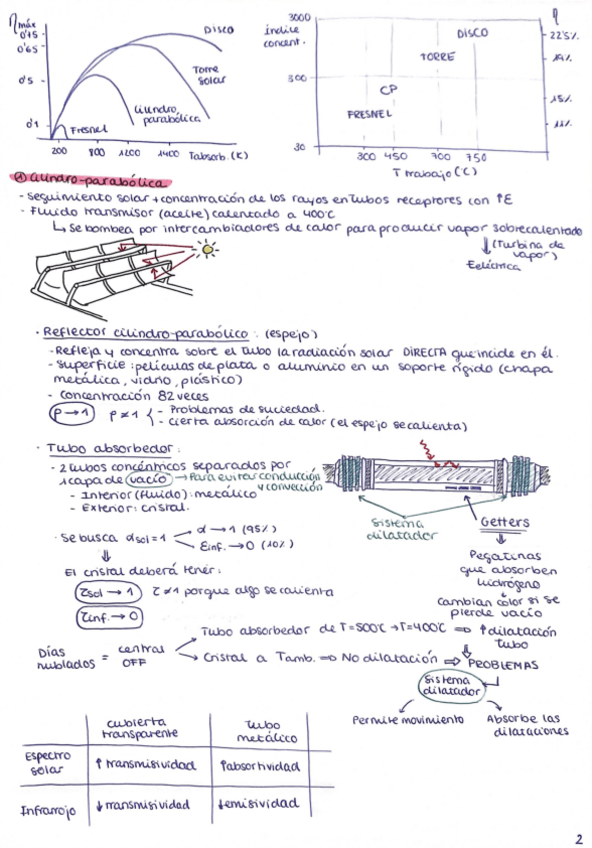 ηmáx
0'75
0'65
0'5
0'1
Disco
Torre
solar
Cilindro
parabólica
Fresnel
200 800 1200 1400 Tabsorb.(K)
índice
concent.
3000
300
30
DISCO
TORRE
CP
FRESNEL
300 450 700 750
T trabajo (C)
η
22'5%
15%
11%
Cilindro-parabólica
- Seguimiento solar + concentración de los rayos en tubos receptores con ↑E
- Fluido transmisor (aceite) calentado a 400°C
↳ Se bombea por intercambiadores de calor para producir vapor sobrecalentado
↓ (Turbina de
vapor)
Eeléctrica
· Reflector cilindro-parabólico: (espejo)
- Refleja y concentra sobre el tubo la radiación solar DIRECTA que incide en él.
- Superficie: películas de plata o aluminio en un soporte rígido (chapa
metálica, vidrio, plástico)
- Concentración 82 veces
ρ→1 ρ≠1 { - Problemas de suciedad.
- Cierta absorción de calor (el espejo se calienta)
· Tubo absorbedor:
- 2 tubos concéntricos separados por
1 capa de vacío → Para evitar conducción
y convección
- Interior (fluido): metálico
- Exterior: cristal.
Sistema
dilatador
Getters
↓
Pegatinas
que absorben
hidrógeno
↓
cambian color si se
pierde vacío
· Se busca αsol = 1
α → 1 (95%)
Einf. → 0 (10%)
↓
El cristal deberá tener:
τsol → 1 τ≠1 porque algo se calienta
τinf. → 0
Días
nublados = central
OFF
Tubo absorbedor de T=500°C → T=400°C ⇒ ↑dilatación
tubo
Cristal a Tamb. ⇒ No dilatación ⇒ PROBLEMAS
Sistema
dilatador
Permite movimiento
Absorbe las
dilataciones
cubierta
transparente
tubo
metálico
Espectro
solar
↑ transmisividad
↑absortividad
Infrarrojo
↓ transmisividad
↓emisividad
2